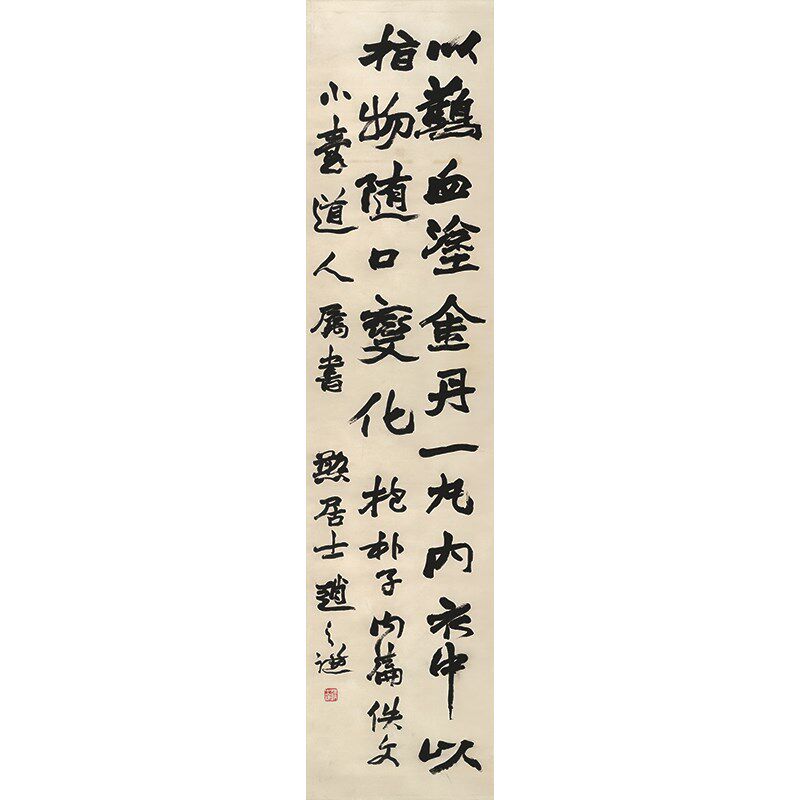 以血塗金丹一丸內衣中以
指物随口變化 抱朴子內篇佚文
小道人屬書 憨居士趙之謙